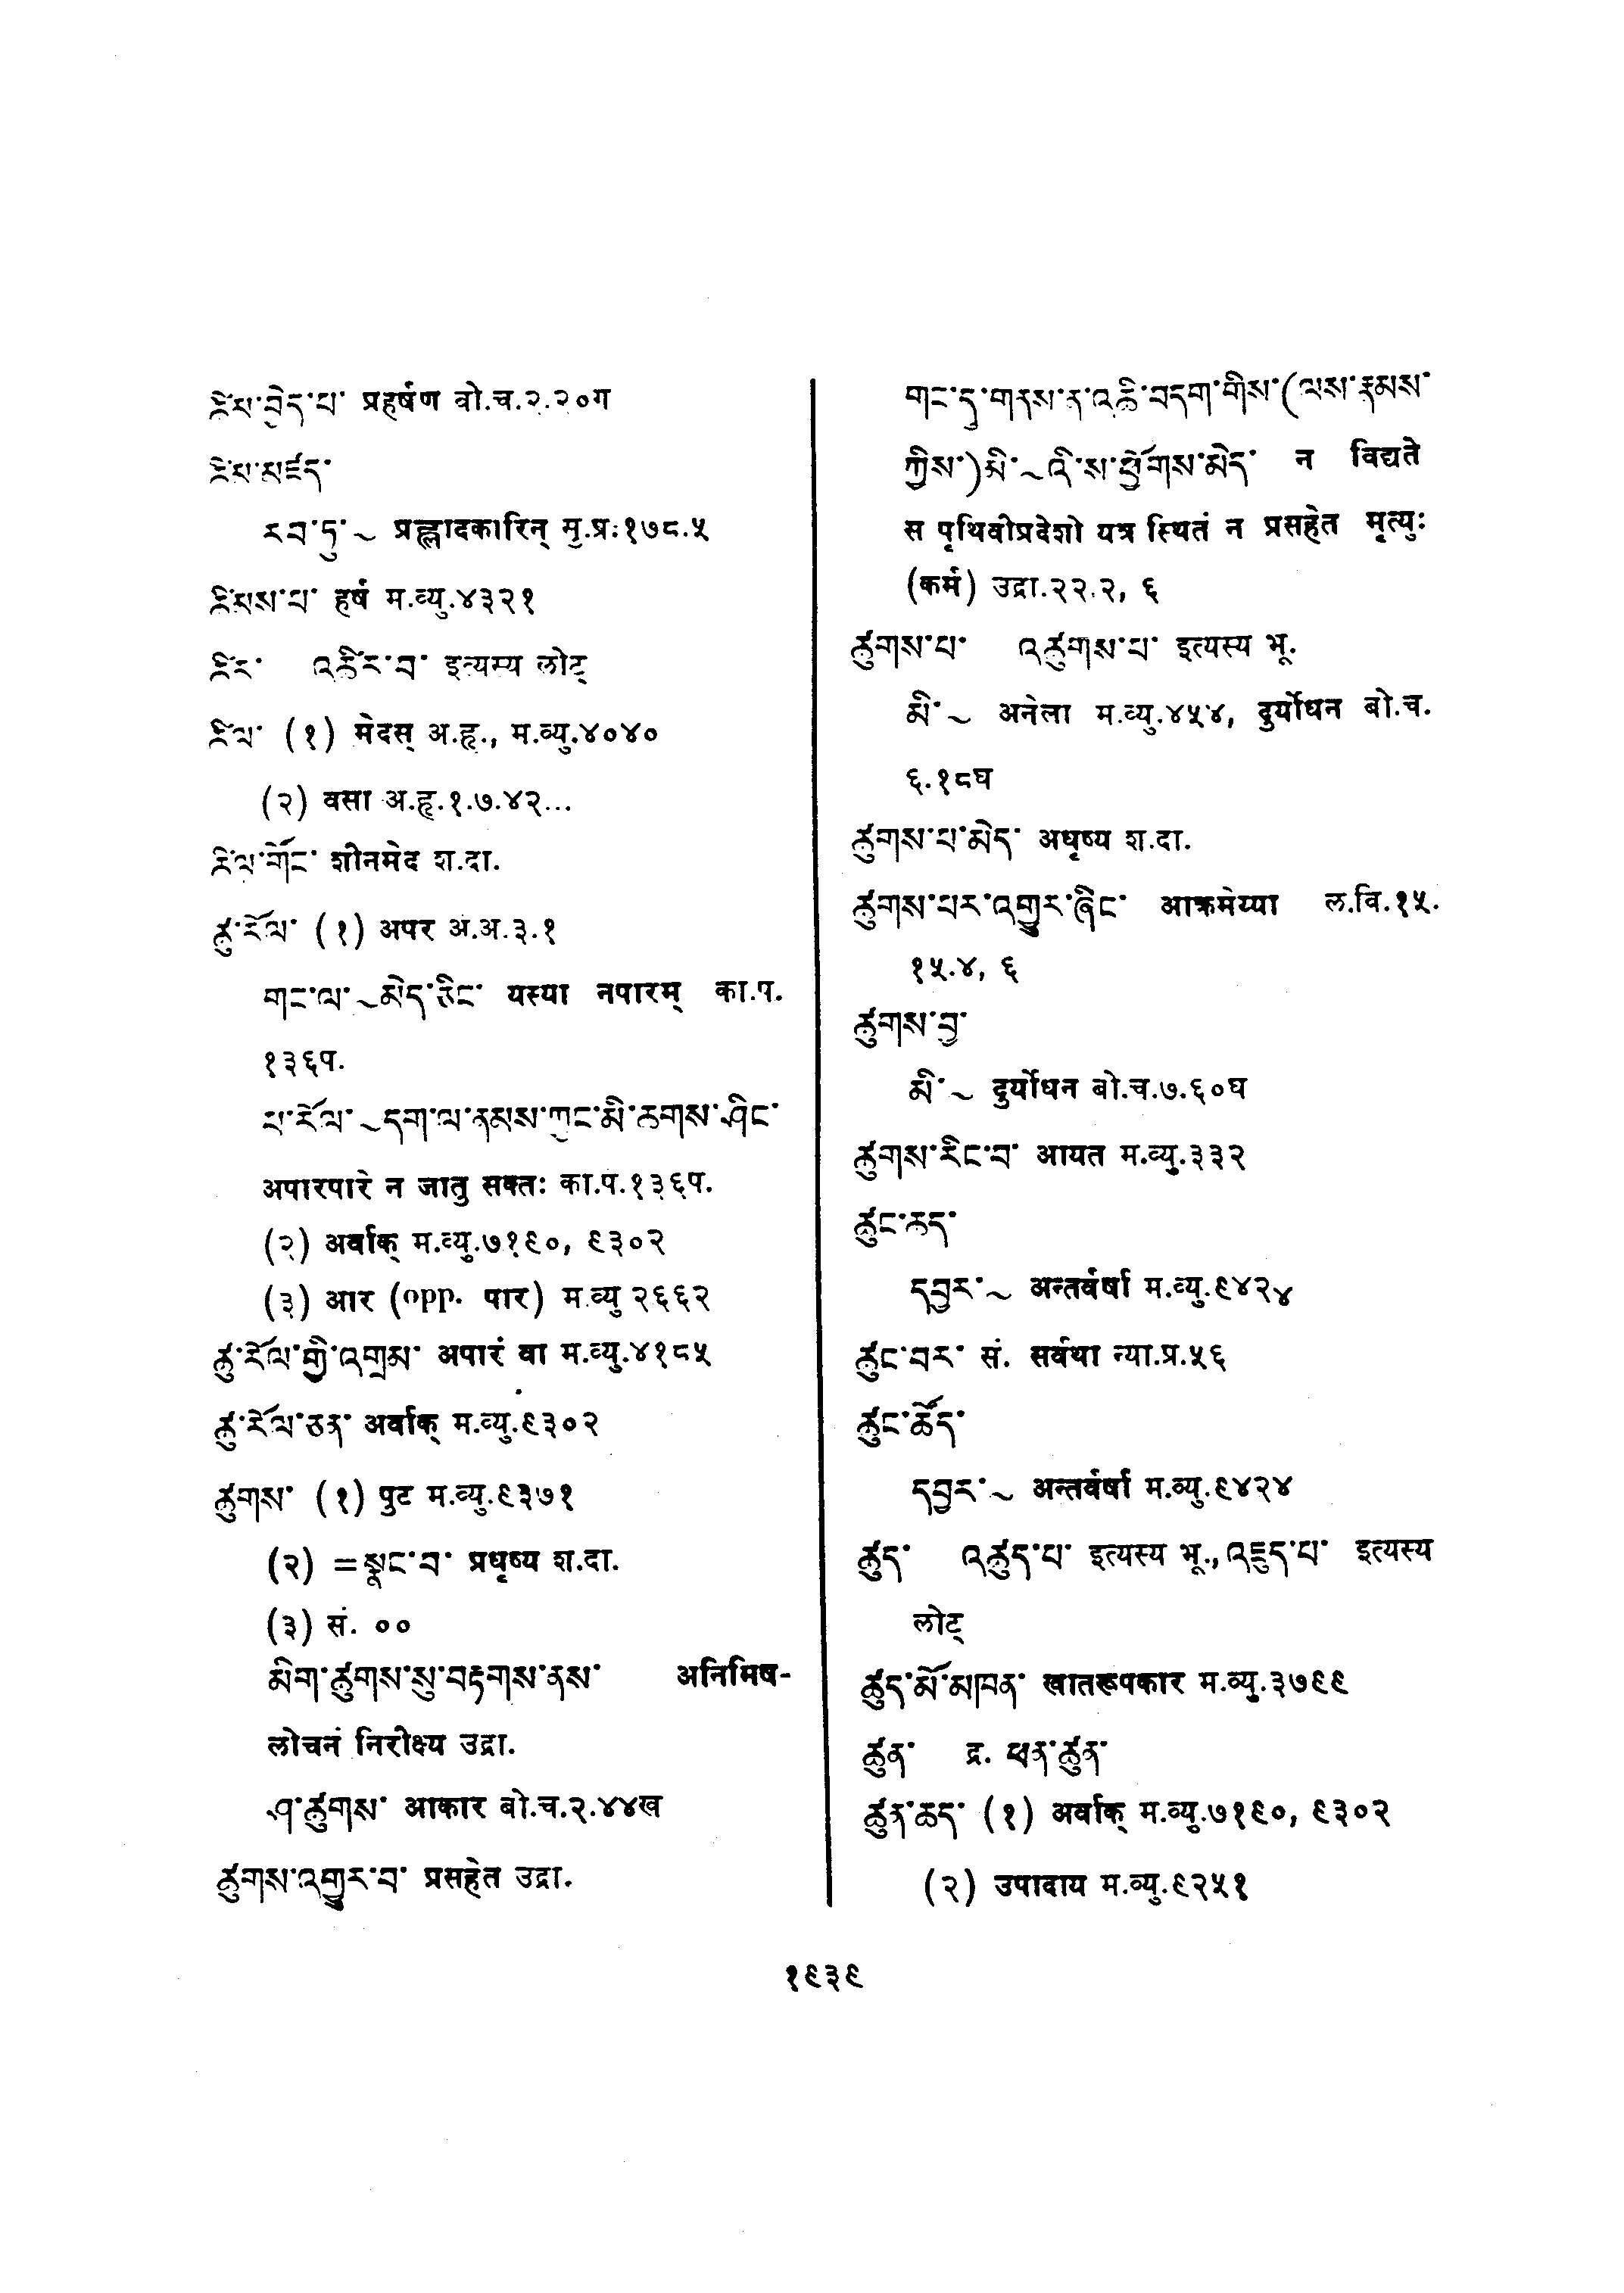 ཚིམ་བྱེད་པ་ प्रहर्षण बो.च.२.२०ग
ཚིམ་མཛད་
རབ་ཏུ་~ प्रह्लादकारिन् मृ.प्र:१७८.५
ཚིམས་པ་ हर्ष म.व्यु.४३२१
ཚིར་ འཚིར་བ་ इत्यस्य लोट्
ཚིལ་ (१) मेदस् अ.हृ., म.व्यु.४०४०
(२) वसा अ.हृ.१.७.४२...
ཚིལ་གོང་ शीनमेद श.दा.
ཚུ་རོལ་ (१) अपर अ.अ.३.१
གང་ལ་~མེད་ཅིང་ यस्या नपारम् का.प.
१३६प.
ཕ་རོལ་~དག་ལ་ནམས་ཀྱང་མི་ཆགས་ཤིང་
अपारपारे न जातु सक्तः का.प.१३६प.
(२) अर्वाक् म.व्यु.७१९०, ९३०२
(३) आर (opp. पार) म.व्यु २६६२
ཚུ་རོལ་གྱི་འགྲམ་ अपारं वा म.व्यु.४१८५
ཚུ་རོལ་ཅན་ अर्वाक् म.व्यु.९३०२
ཚུགས་ (१) पुट म.व्यु.९३७१
(२) =སྣང་བ་ प्रधृष्य श.दा.
(३) सं. ००
མིག་ཚུགས་སུ་བརྟགས་ནས་ अनिमिष-
लोचनं निरीक्ष्य उद्रा.
ཤ་ཚུགས་ आकार बो.च.२.४४ख
ཚུགས་འགྱུར་བ་ प्रसहेत उद्रा.
གང་དུ་གནས་ན་འཆི་བདག་གིས་(ལས་རྣམས་
ཀྱིས་)མི་~འི་ས་ཕྱོགས་མེད་ न विद्यते
स पृथिवीप्रदेशो यत्र स्थितं न प्रसहेत मृत्युः
(कर्म) उद्रा.२२.२, ६
ཚུགས་པ་ འཚུགས་པ་ इत्यस्य भू.
མི་~ अनेला म.व्यु.४५४, दुर्योधन बो.च.
६.१८घ
ཚུགས་པ་མེད་ अधृष्य श.दा.
ཚུགས་པར་འགྱུར་ཞིང་ आक्रमेय्या ल.वि.१५.
१५.४, ६
ཚུགས་བྱ་
མི་~ दुर्योधन बो.च.७.६०घ
ཚུགས་རིང་བ་ आयत म.व्यु.३३२
ཚུང་ཆད་
དབྱར་~ अन्तर्वर्षा म.व्यु.९४२४
ཚུང་བར་ सं. सर्वथा न्या.प्र.५६
ཚུང་ཚོད་
དབྱར་~ अन्तर्वर्षा म.व्यु.९४२४
ཚུད་ འཚུད་པ་ इत्यस्य भू.,འཛུད་པ་ इत्यस्य
लोट्
ཚུད་མོ་མཁན་ खातरूपकार म.व्यु.३७९९
ཚུན་ द्र. ཕན་ཚུན་
ཚུན་ཆད་ (१) अर्वाक् म.व्यु.७१९०, ९३०२
(२) उपादाय म.व्यु.९२५१
१९३९